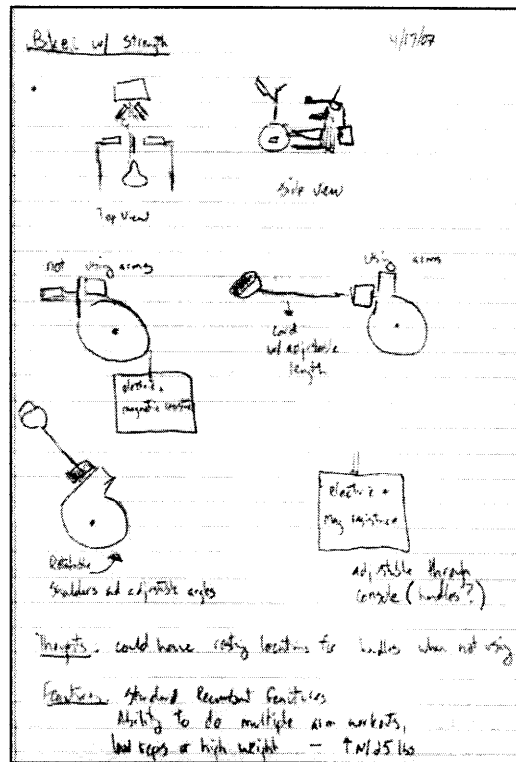 Bike w/ strength
4/17/07
Top View
side view
not using arms
using arms
cord
w/ adjustable
length
electric +
magnetic resistance
electric +
Mag resistance
Rotatable
Shoulders w/ adjustable angles
adjustable through
console (handles?)
Thoughts: could have resting locations for handles when not using
Features: standard Recumbent features
Ability to do multiple arm workouts,
low reps or high weight -